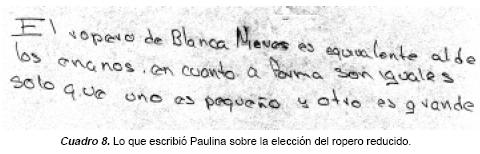 El ropero de Blanca Nieves es equivalente al de
los enanos, en cuanto a forma son iguales
solo que uno es pequeño y otro es grande
Cuadro 8. Lo que escribió Paulina sobre la elección del ropero reducido.